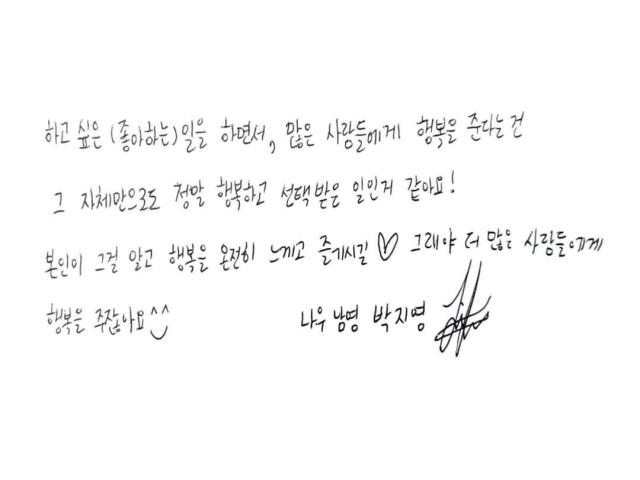 하고 싶은 (좋아하는) 일을 하면서, 많은 사람들에게 행복을 준다는건
그 자체만으로도 정말 행복하고 선택받은 일인거 같아요!
본인이 그걸 알고 행복을 온전히 느끼고 즐기시길 ♡ 그래야 더 많은 사람들에게
행복을 주잖아요^^
나우 남영 박지영